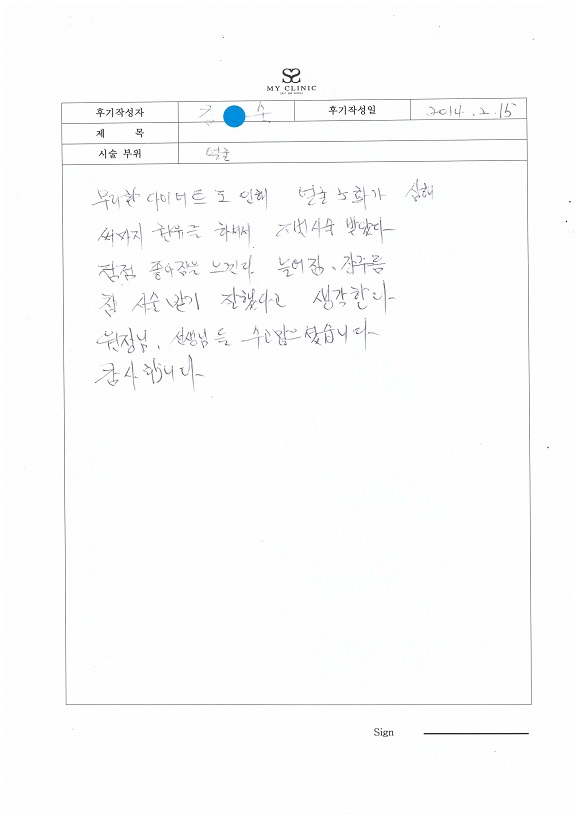 MY CLINIC
후기작성자 후기작성일 2014. 2. 15
제 목
시술 부위 얼굴
무리한 다이어트로 인해 얼굴 노화가 심해
권유를 하셔서 시술 받았다
점점 좋아짐을 느낀다. 늘어짐, 잔주름
참 시술받기 잘했다고 생각한다
원장님, 선생님들 수고많으셨습니다
감사합니다
Sign